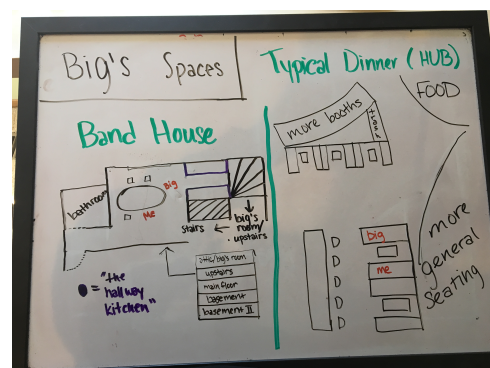 Big's Spaces
Typical Dinner (HUB)
FOOD
more booths
Band House
bathroom
Big
me
stairs
big's
room/
upstairs
attic/big's room
upstairs
main floor
basement
basement II
= "the
hallway
kitchen"
big
me
more
general
seating